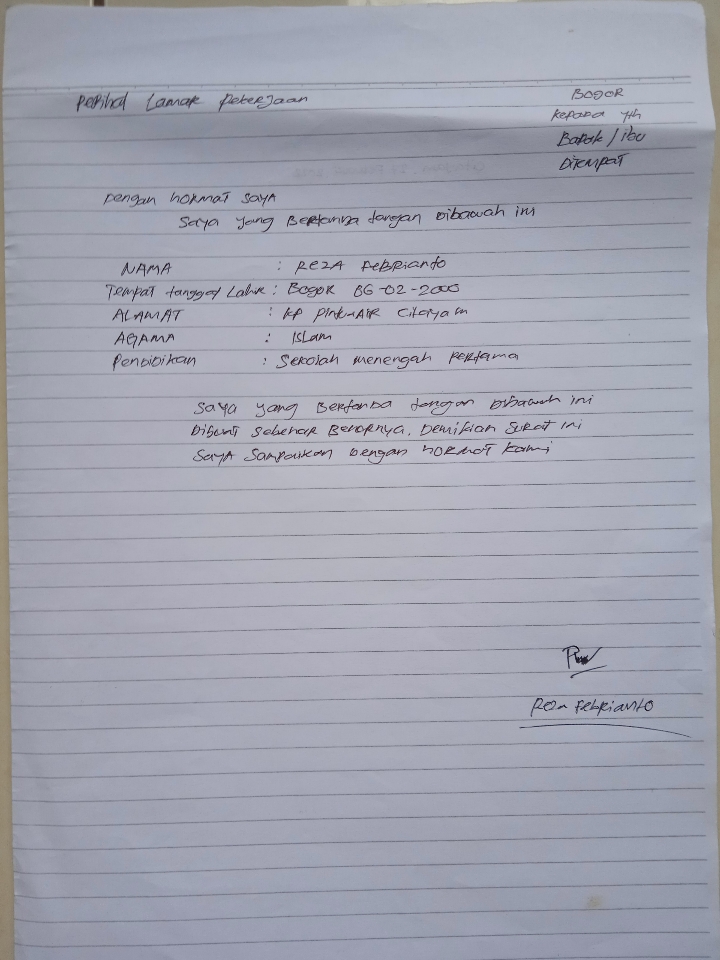 Perihal Lamar Pekerjaan
BOGOR
Kepada yth
Bapak / ibu
Ditempat
Dengan hormat saya
Saya yang Bertanda tangan Dibawah ini
NAMA : REZA FEBRIANTO
Tempat tanggal Lahir : Bogor 06-02-2000
ALAMAT : KP Pintu AIR Citayam
AGAMA : Islam
Pendidikan : Sekolah menengah Pertama
Saya yang Bertanda tangan Dibawah ini
Dibuat Sebenar Benarnya. Demikian Surat ini
Saya Sampaikan Dengan hormat Kami
Reza Febrianto